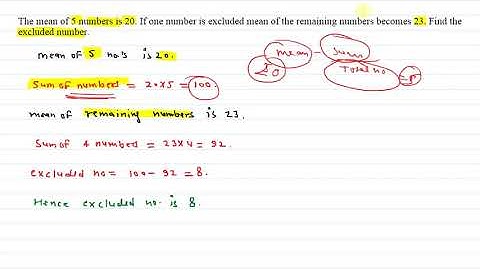 The mean of 5 numbers is 20. If one number is excluded mean of the remaining numbers becomes 23. Find the
excluded number.
mean of 5 no's is 20.
mean = Sum
Total no
20
Sum of numbers = 20x5 = 100.
mean of remaining numbers is 23.
Sum of 4 numbers = 23x4 = 92.
excluded no = 100 - 92 = 8.
Hence excluded no. is 8.